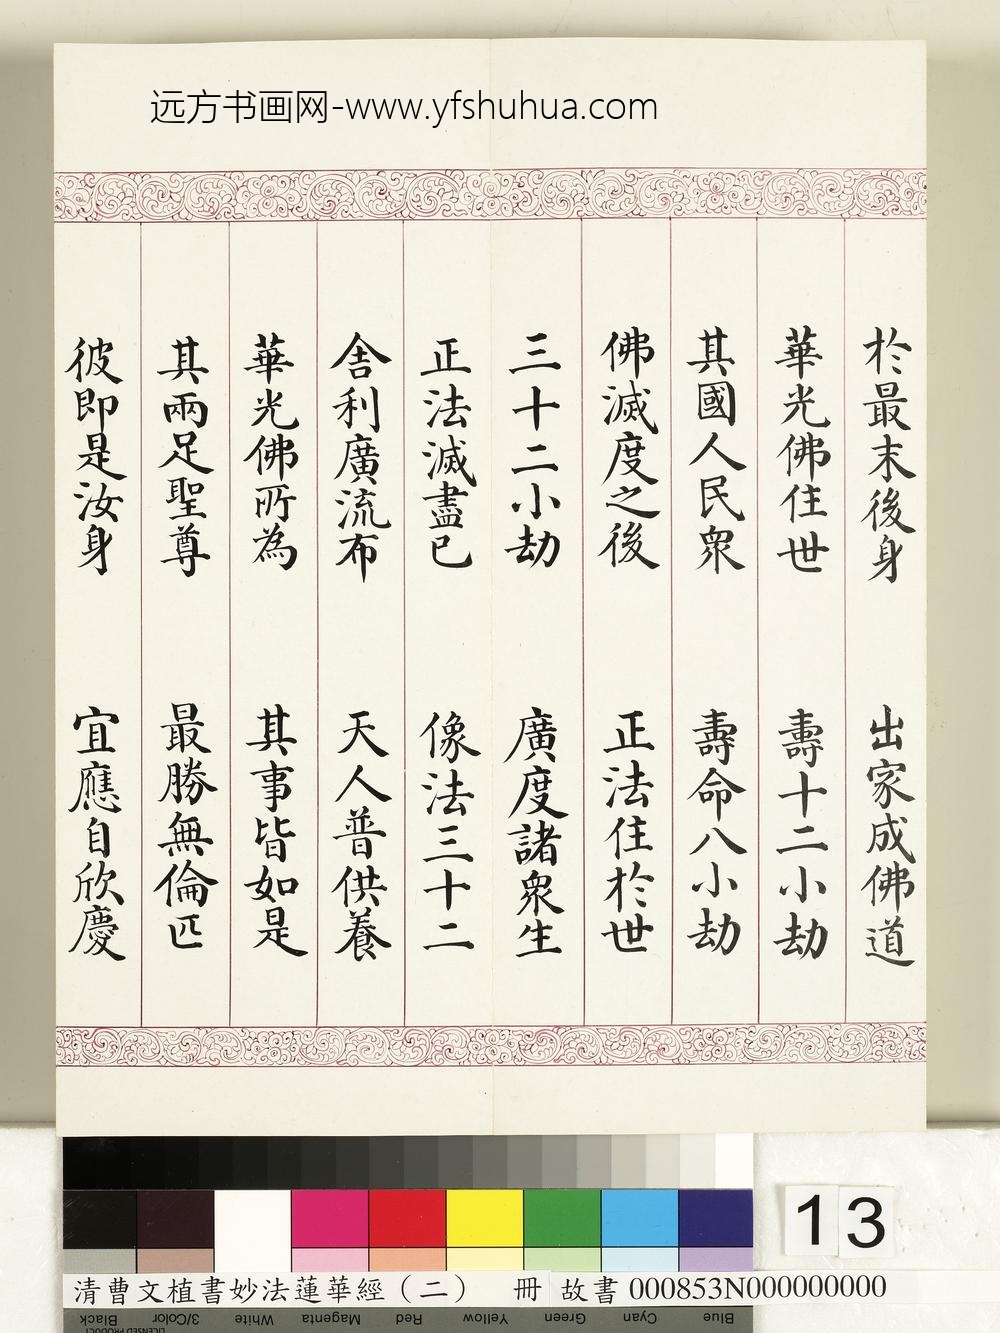 远方书画网-www.yfshuhua.com
於最末後身 出家成佛道
華光佛住世 壽十二小劫
其國人民衆 壽命八小劫
佛滅度之後 正法住於世
三十二小劫 廣度諸衆生
正法滅盡已 像法三十二
舍利廣流布 天人普供養
華光佛所為 其事皆如是
其兩足聖尊 最勝無倫匹
彼即是汝身 宜應自欣慶
13
清曹文植書妙法蓮華經（二） 冊 故書 000853N000000000
Black 3/Color White Magenta Red Yellow Green Cyan Blue
LICENSED PRODUCT